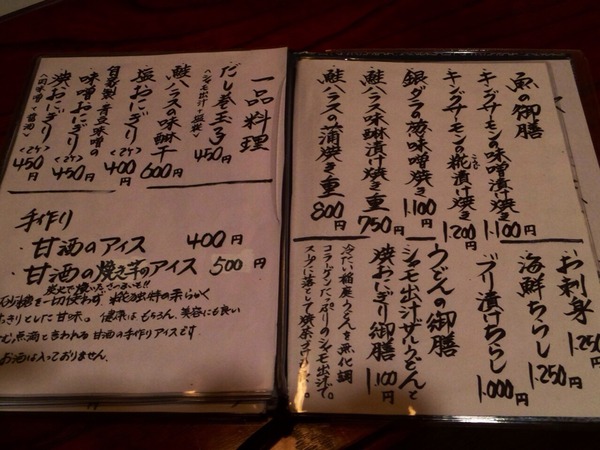 魚の御膳
キングサーモンの味噌漬け焼き 1.100円
キングサーモンの糀漬け焼き 1.200円
銀ダラの麹味噌焼き 1.100円
鮭ハラス味醂漬け焼き重 750円
鮭ハラスの蒲焼き重 800円
お刺身 1.250
海鮮ちらし 1.250円
ブリ漬けちらし 1.000円
うどんの御膳
シャモ出汁ザルうどんと
焼おにぎり御膳 1.100円
冷たい稲庭うどんを無化調
コラーゲンたっぷりのシャモ出汁で。
一品料理
だし巻玉子 450円
鮭ハラスの味醂干 600円
塩おにぎり<2ケ> 400円
自家製 青豆味噌の
味噌おにぎり<2ケ> 450円
焼おにぎり<2ケ> 450円
手作り
・甘酒のアイス 400円
・甘酒の焼き芋のアイス 500円
砂糖を一切使わず、糀
きりとした甘味。健康はもちろん、美容にも良い
点滴と言われる甘酒の手作りアイスです
お酒は入っておりません。